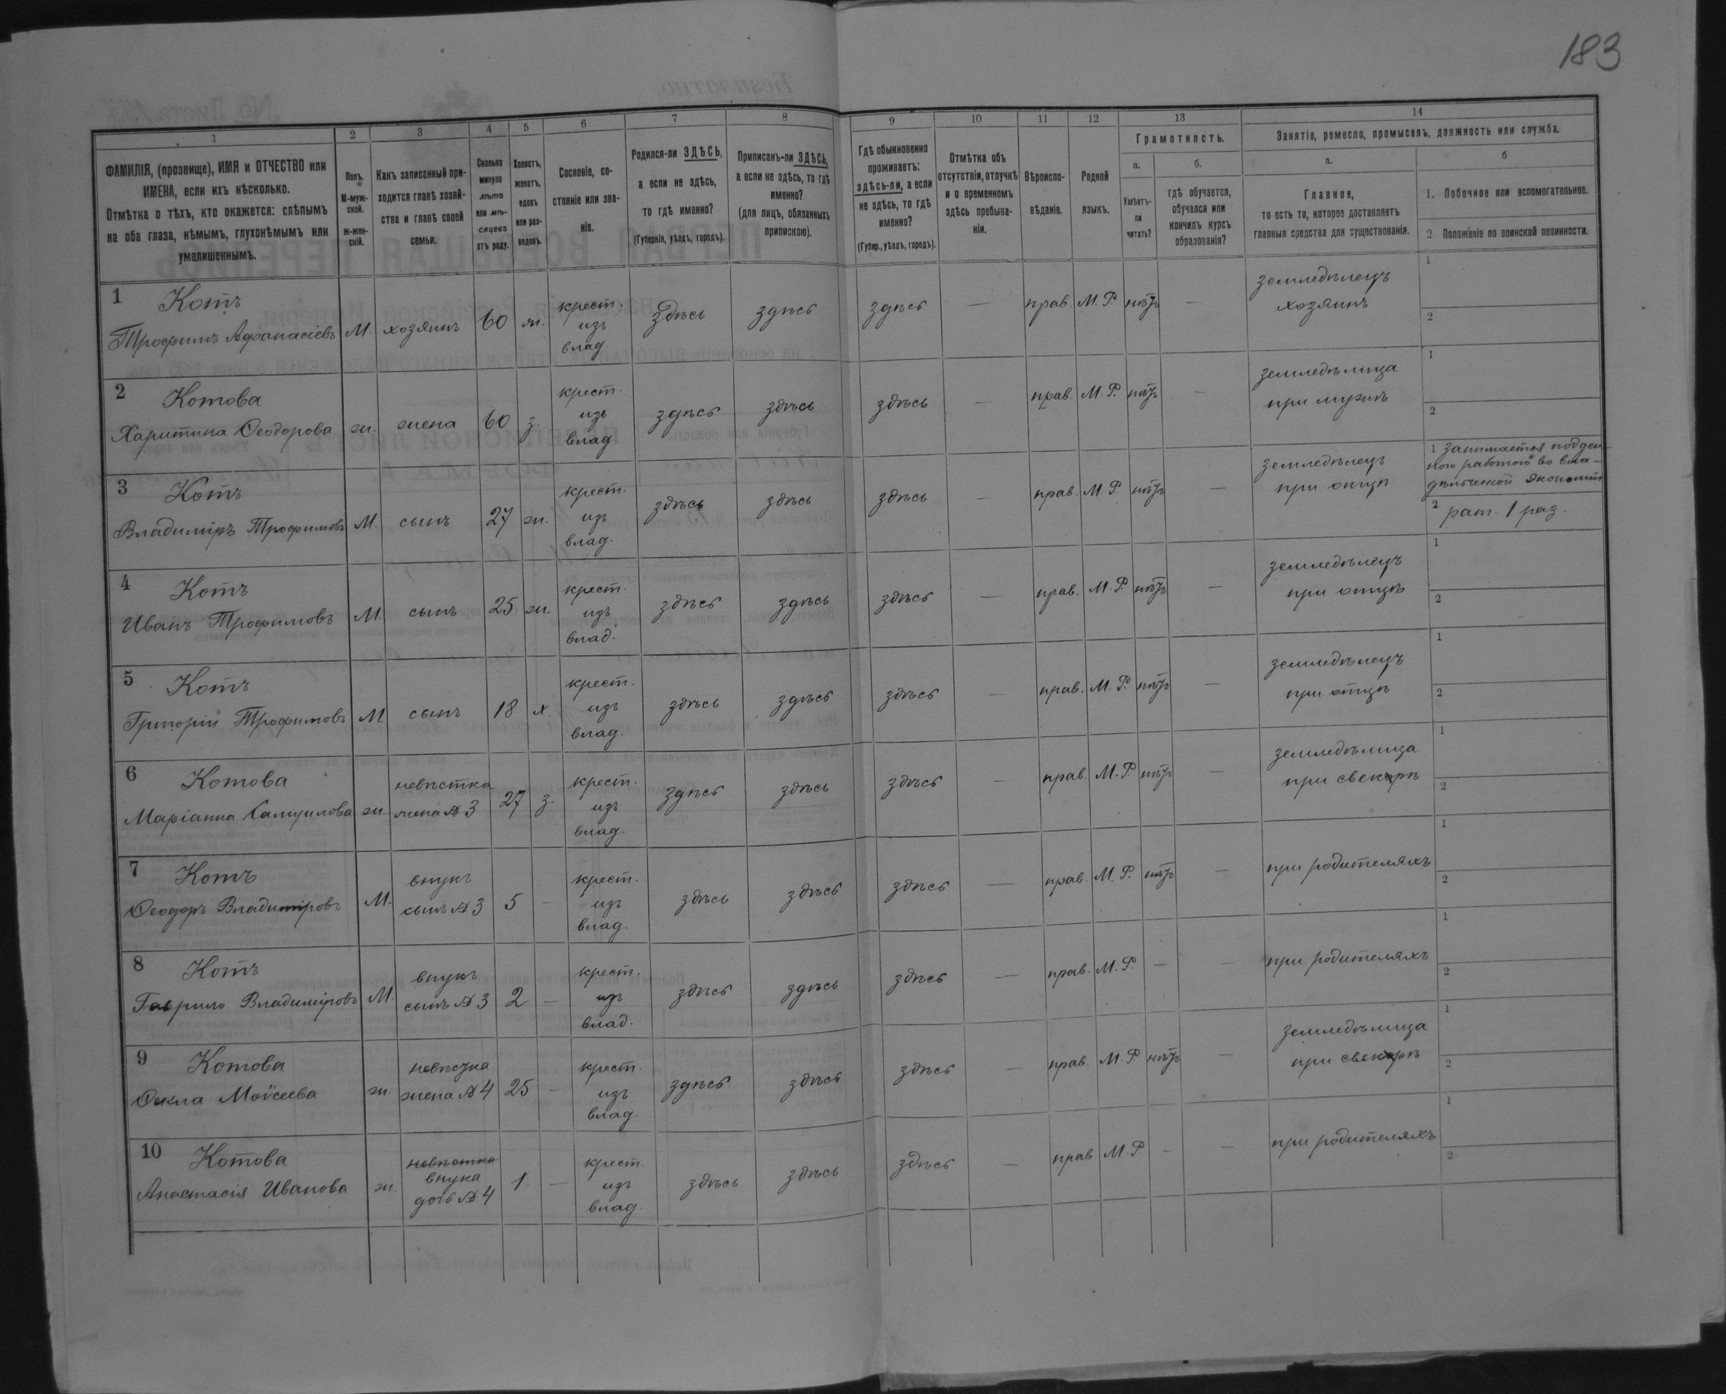 183
1 2 3 4 5 6 7 8 9 10 11 12 13 14
ФАМИЛІЯ, (прозвище), ИМЯ и ОТЧЕСТВО или
ИМЕНА, если ихъ нѣсколько.
Отмѣтка о тѣхъ, кто окажется: слѣпымъ
на оба глаза, нѣмымъ, глухонѣмымъ или
умалишеннымъ.
Полъ.
М-муж-
ской.
ж-жен-
скій.
Какъ записанный при-
ходится главѣ хозяй-
ства и главѣ своей
семьи.
Сколько
минуло
лѣтъ
или мѣ-
сяцевъ
отъ роду.
Холостъ,
женатъ,
вдовъ
или раз-
веденъ.
Сословіе, со-
стояніе или зва-
ніе.
Родился-ли ЗДѢСЬ,
а если не здѣсь,
то гдѣ именно?
(Губернія, уѣздъ, городъ).
Приписанъ-ли ЗДѢСЬ,
а если не здѣсь, то гдѣ
именно?
(для лицъ, обязанныхъ
припискою).
Гдѣ обыкновенно
проживаетъ:
здѣсь-ли, а если
не здѣсь, то гдѣ
именно?
(Губер., уѣздъ, городъ).
Отмѣтка объ
отсутствіи, отлучкѣ
и о временномъ
здѣсь пребыва-
ніи.
Вѣроиспо-
вѣданіе.
Родной
языкъ.
Грамотность.
а.
Умѣетъ-
ли
читать?
б.
гдѣ обучается,
обучался или
кончилъ курсъ
образованія?
Занятіе, ремесло, промыселъ, должность или служба.
а.
Главное,
то есть то, которое доставляетъ
главныя средства для существованія.
б
1. Побочное или вспомогательное.
2 Положеніе по воинской повинности.
1 Котъ
Трофимъ Афанасіевъ М. хозяинъ 60 ж. крест. изъ влад. Здѣсь здѣсь здѣсь — прав. М. Р. нѣтъ — земледѣлецъ хозяинъ 1 2
2 Котова
Харитина Ѳеодорова ж. жена 60 з. крест. изъ влад. здѣсь здѣсь здѣсь — прав. М. Р. нѣтъ — земледѣлица при мужѣ 1 2
3 Котъ
Владиміръ Трофимовъ М. сынъ 27 ж. крест. изъ влад. здѣсь здѣсь здѣсь — прав. М. Р. нѣтъ — земледѣлецъ при отцѣ 1 занимается подден-
ною работою во вла-
дѣльческой экономіи
2 рат. 1 раз.
4 Котъ
Иванъ Трофимовъ М. сынъ 25 ж. крест. изъ влад. здѣсь здѣсь здѣсь — прав. М. Р. нѣтъ — земледѣлецъ при отцѣ 1 2
5 Котъ
Григорій Трофимовъ М сынъ 18 х. крест. изъ влад. здѣсь здѣсь здѣсь — прав. М. Р. нѣтъ — земледѣлецъ при отцѣ 1 2
6 Котова
Маріанна Самуилова ж. невѣстка жена № 3 27 з. крест. изъ влад. здѣсь здѣсь здѣсь — прав. М. Р. нѣтъ — земледѣлица при свекорѣ 1 2
7 Котъ
Ѳеодоръ Владиміровъ М. внукъ сынъ № 3 5 — крест. изъ влад. здѣсь здѣсь здѣсь — прав. М. Р. нѣтъ — при родителяхъ 1 2
8 Котъ
Гаврило Владиміровъ М. внукъ сынъ № 3 2 — крест. изъ влад. здѣсь здѣсь здѣсь — прав. М. Р. — — при родителяхъ 1 2
9 Котова
Ѳекла Моѵсеева ж. невѣстка жена № 4 25 — крест. изъ влад. здѣсь здѣсь здѣсь — прав. М. Р нѣтъ — земледѣлица при свекорѣ 1 2
10 Котова
Анастасія Иванова ж. невѣстка внука дочь № 4 1 — крест. изъ влад. здѣсь здѣсь здѣсь — прав. М. Р — — при родителяхъ 1 2